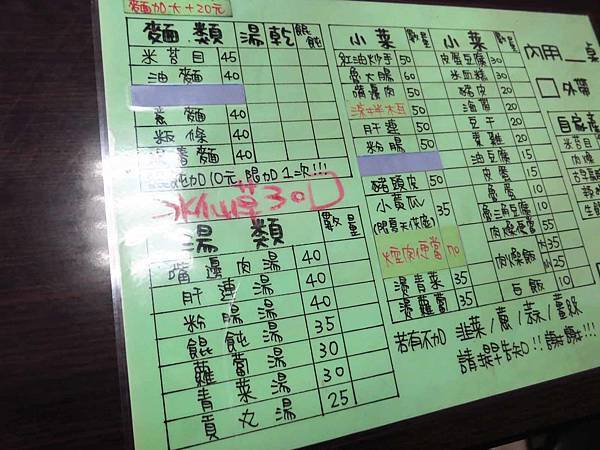 麵加大+20元
麵類 湯 乾 餛飩
米苔目 45
油麵 40
意麵 40
粄條 40
40
加10元.限加1次!!!
冰仙草30口
湯類 數量
嘴邊肉湯 40
肝連湯 40
粉腸湯 40
餛飩湯 35
蘿蔔湯 30
青菜湯 30
貢丸湯 25
小菜 數量
紅油炒手 50
魯大腸 60
嘴邊肉 50
50
肝連 50
粉腸 50
豬頭皮 50
小黃瓜 35
(限夏天供應)
焢肉便當 70
湯青菜 35
湯蘿蔔 35
小菜 數量
皮蛋豆腐 30
米血糕 30
豬皮 20
海帶 20
豆干 20
素雞 20
油豆腐 15
皮蛋 15
魯蛋 15
魯三角豆腐 10
肉燥便當 55
肉燥飯 大35 小25
白飯 10
內用 桌
外帶
自家產
米苔目
肉燥
若有不加 韭菜/蔥/蒜/薑絲
請提早告知!!謝謝!!!